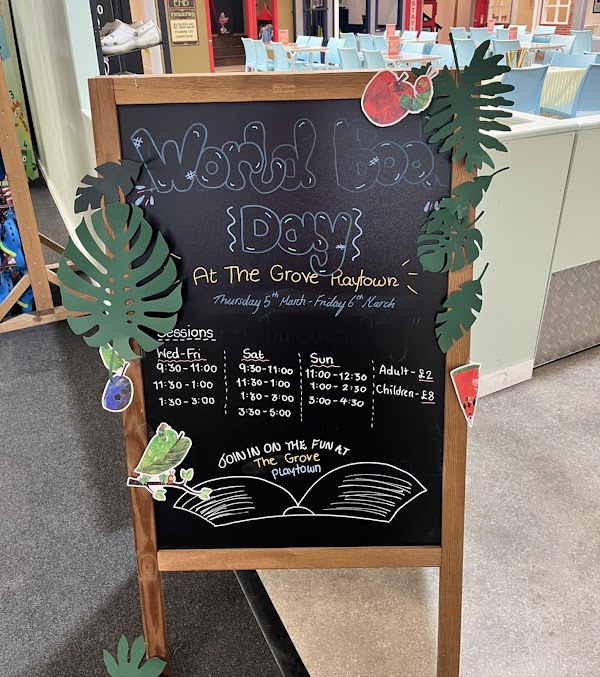 World Book
Day
At The Grove Playtown
Thursday 5th March - Friday 6th March
Sessions
Wed-Fri
9:30-11:00
11:30-1:00
1:30-3:00
Sat
9:30-11:00
11:30-1:00
1:30-3:00
3:30-5:00
Sun
11:00-12:30
1:00-2:30
3:00-4:30
Adult-£2
Children-£8
JOIN IN ON THE FUN AT
The Grove
Playtown